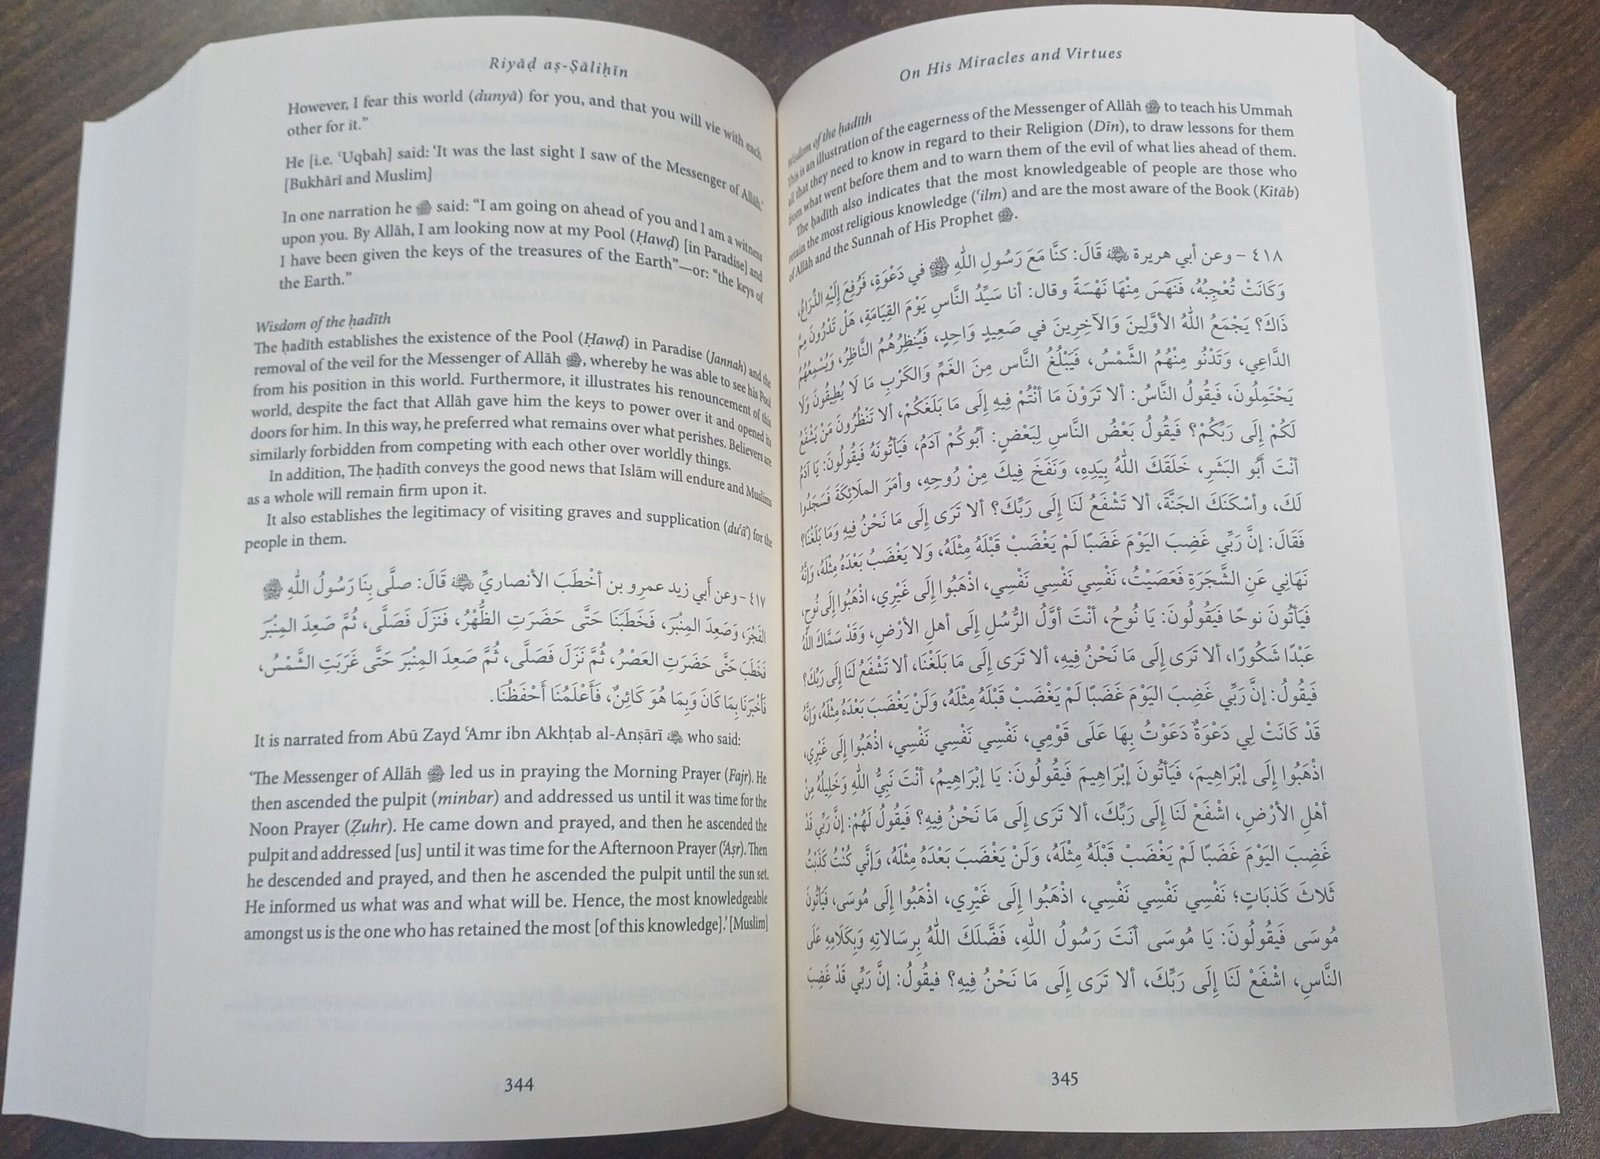 Riyāḍ aṣ-Ṣāliḥīn
However, I fear this world (dunyā) for you, and that you will vie with each
other for it.”
He [i.e. ʿUqbah] said: ‘It was the last sight I saw of the Messenger of Allāh.’
[Bukhārī and Muslim]
In one narration he ﷺ said: “I am going on ahead of you and I am a witness
upon you. By Allāh, I am looking now at my Pool (Ḥawḍ) [in Paradise] and
I have been given the keys of the treasures of the Earth”—or: “the keys of
the Earth.”
Wisdom of the ḥadīth
The ḥadīth establishes the existence of the Pool (Ḥawḍ) in Paradise (Jannah) and the
removal of the veil for the Messenger of Allāh ﷺ, whereby he was able to see his Pool
from his position in this world. Furthermore, it illustrates his renouncement of this
world, despite the fact that Allāh gave him the keys to power over it and opened its
doors for him. In this way, he preferred what remains over what perishes. Believers are
similarly forbidden from competing with each other over worldly things.
In addition, The ḥadīth conveys the good news that Islām will endure and Muslims
as a whole will remain firm upon it.
It also establishes the legitimacy of visiting graves and supplication (duʿāʾ) for the
people in them.
٤١٧ - وعن أبي زيد عمرِو بن أخْطَبَ الأنصاريِّ ﷺ قَالَ: صلَّى بِنَا رَسُولُ اللهِ ﷺ
الفَجْرَ، وَصَعِدَ المِنْبَرَ، فَخَطَبَنَا حَتَّى حَضَرَتِ الظُّهْرُ، فَنَزَلَ فَصَلَّى، ثُمَّ صَعِدَ المِنْبَرَ
فَخَطَبَ حَتَّى حَضَرَتِ العَصْرُ، ثُمَّ نَزَلَ فَصَلَّى، ثُمَّ صَعِدَ المِنْبَرَ حَتَّى غَرَبَتِ الشَّمْسُ،
فَأَخْبَرَنَا بِمَا كَانَ وَبِمَا هُوَ كَائِنٌ، فَأَعْلَمُنَا أَحْفَظُنَا.
It is narrated from Abū Zayd ʿAmr ibn Akhṭab al-Anṣārī who said:
‘The Messenger of Allāh ﷺ led us in praying the Morning Prayer (Fajr). He
then ascended the pulpit (minbar) and addressed us until it was time for the
Noon Prayer (Ẓuhr). He came down and prayed, and then he ascended the
pulpit and addressed [us] until it was time for the Afternoon Prayer (ʿAṣr). Then
he descended and prayed, and then he ascended the pulpit until the sun set.
He informed us what was and what will be. Hence, the most knowledgeable
amongst us is the one who has retained the most [of this knowledge].’ [Muslim]
344
On His Miracles and Virtues
Wisdom of the ḥadīth
This is an illustration of the eagerness of the Messenger of Allāh ﷺ to teach his Ummah
all that they need to know in regard to their Religion (Dīn), to draw lessons for them
from what went before them and to warn them of the evil of what lies ahead of them.
The ḥadīth also indicates that the most knowledgeable of people are those who
retain the most religious knowledge (ʿilm) and are the most aware of the Book (Kitāb)
of Allāh and the Sunnah of His Prophet ﷺ.
٤١٨ - وعن أبي هريرة قَالَ: كنَّا مَعَ رَسُولِ اللهِ ﷺ في دَعْوَةٍ، فَرُفِعَ إِلَيْهِ الذِّرَاعُ،
وَكَانَتْ تُعْجِبُهُ، فَنَهَسَ مِنْهَا نَهْسَةً وقال: أنا سَيِّدُ النَّاسِ يَوْمَ القِيَامَةِ، هَلْ تَدْرُونَ مِمَّ
ذَاكَ؟ يَجْمَعُ اللهُ الأوَّلِينَ وَالآخِرِينَ في صَعِيدٍ وَاحِدٍ، فَيُنظِرُهُمُ النَّاظِرُ، وَيُسْمِعُهُمُ
الدَّاعِي، وَتَدْنُو مِنْهُمُ الشَّمْسُ، فَيَبْلُغُ النَّاس مِنَ الغَمِّ وَالكَرْبِ مَا لَا يُطِيقُونَ وَلَا
يَحْتَمِلُونَ، فَيقُولُ النَّاسُ: ألا تَرَوْنَ مَا أنْتُمْ فِيهِ إِلَى مَا بَلَغَكُمْ، ألا تَنْظُرُونَ مَنْ يَشْفَعُ
لَكُمْ إِلَى رَبِّكُمْ؟ فَيقُولُ بَعْضُ النَّاسِ لِبَعْضٍ: أبُوكُمْ آدَمُ، فَيَأْتُونَهُ فَيقُولُونَ: يَا آدَمُ
أنْتَ أَبُو البَشَرِ، خَلَقَكَ اللهُ بِيَدِهِ، وَنَفَخَ فِيكَ مِنْ رُوحِهِ، وأمَرَ المَلَائِكَةَ فَسَجَدُوا
لَكَ، وأسْكَنَكَ الجَنَّةَ، ألا تَشْفَعُ لَنَا إلَى رَبِّكَ؟ ألا تَرَى إِلَى مَا نَحْنُ فِيهِ وَمَا بَلَغْنَا؟
فَقَالَ: إنَّ رَبِّي غَضِبَ اليَوْمَ غَضَبًا لَمْ يَغْضَبْ قَبْلَهُ مِثْلَهُ، وَلا يَغْضَبُ بَعْدَهُ مِثْلَهُ، وَإنَّهُ
نَهَانِي عَنِ الشَّجَرَةِ فَعَصَيْتُ، نَفْسِي نَفْسِي نَفْسِي، اذْهَبُوا إِلَى غَيْرِي، اذْهَبُوا إِلَى نُوحٍ،
فَيَأتُونَ نوحًا فَيقُولُونَ: يَا نُوحُ، أنْتَ أوَّلُ الرُّسُلِ إِلَى أهلِ الأرْضِ، وَقَدْ سَمَّاكَ اللهُ
عَبْدًا شَكُورًا، ألا تَرَى إِلَى مَا نَحْنُ فِيهِ، ألا تَرَى إِلَى مَا بَلَغْنَا، ألا تَشْفَعُ لَنَا إِلَى رَبِّكَ؟
فَيقُولُ: إنَّ رَبِّي غَضِبَ اليَوْمَ غَضَبًا لَمْ يَغْضَبْ قَبْلَهُ مِثْلَهُ، وَلَنْ يَغْضَبَ بَعْدَهُ مِثْلَهُ، وَإنَّهُ
قَدْ كَانَتْ لِي دَعْوَةٌ دَعَوْتُ بِهَا عَلَى قَوْمِي، نَفْسِي نَفْسِي نَفْسِي، اذْهَبُوا إِلَى غَيْرِي،
اذْهَبُوا إِلَى إبْرَاهِيمَ، فَيَأتُونَ إبْرَاهِيمَ فَيقُولُونَ: يَا إبْرَاهِيمُ، أنْتَ نَبِيُّ اللهِ وَخَلِيلُهُ مِنْ
أهْلِ الأرْضِ، اشْفَعْ لَنَا إِلَى رَبِّكَ، ألا تَرَى إِلَى مَا نَحْنُ فِيهِ؟ فَيقُولُ لَهُمْ: إنَّ رَبِّي قَدْ
غَضِبَ اليَوْمَ غَضَبًا لَمْ يَغْضَبْ قَبْلَهُ مِثْلَهُ، وَلَنْ يَغْضَبَ بَعْدَهُ مِثْلَهُ، وَإنَّي كُنْتُ كَذَبْتُ
ثَلاثَ كَذبَاتٍ؛ نَفْسِي نَفْسِي نَفْسِي، اذْهَبُوا إِلَى غَيْرِي، اذْهَبُوا إِلَى مُوسَى، فَيَأتُونَ
مُوسَى فَيقُولُونَ: يَا مُوسَى أنتَ رَسُولُ اللهِ، فَضَّلَكَ اللهُ بِرسَالاتِهِ وَبِكَلَامِهِ عَلَى
النَّاسِ، اشْفَعْ لَنَا إِلَى رَبِّكَ، ألا تَرَى إِلَى مَا نَحْنُ فِيهِ؟ فيقُولُ: إنَّ رَبِّي قَدْ غَضِبَ
345